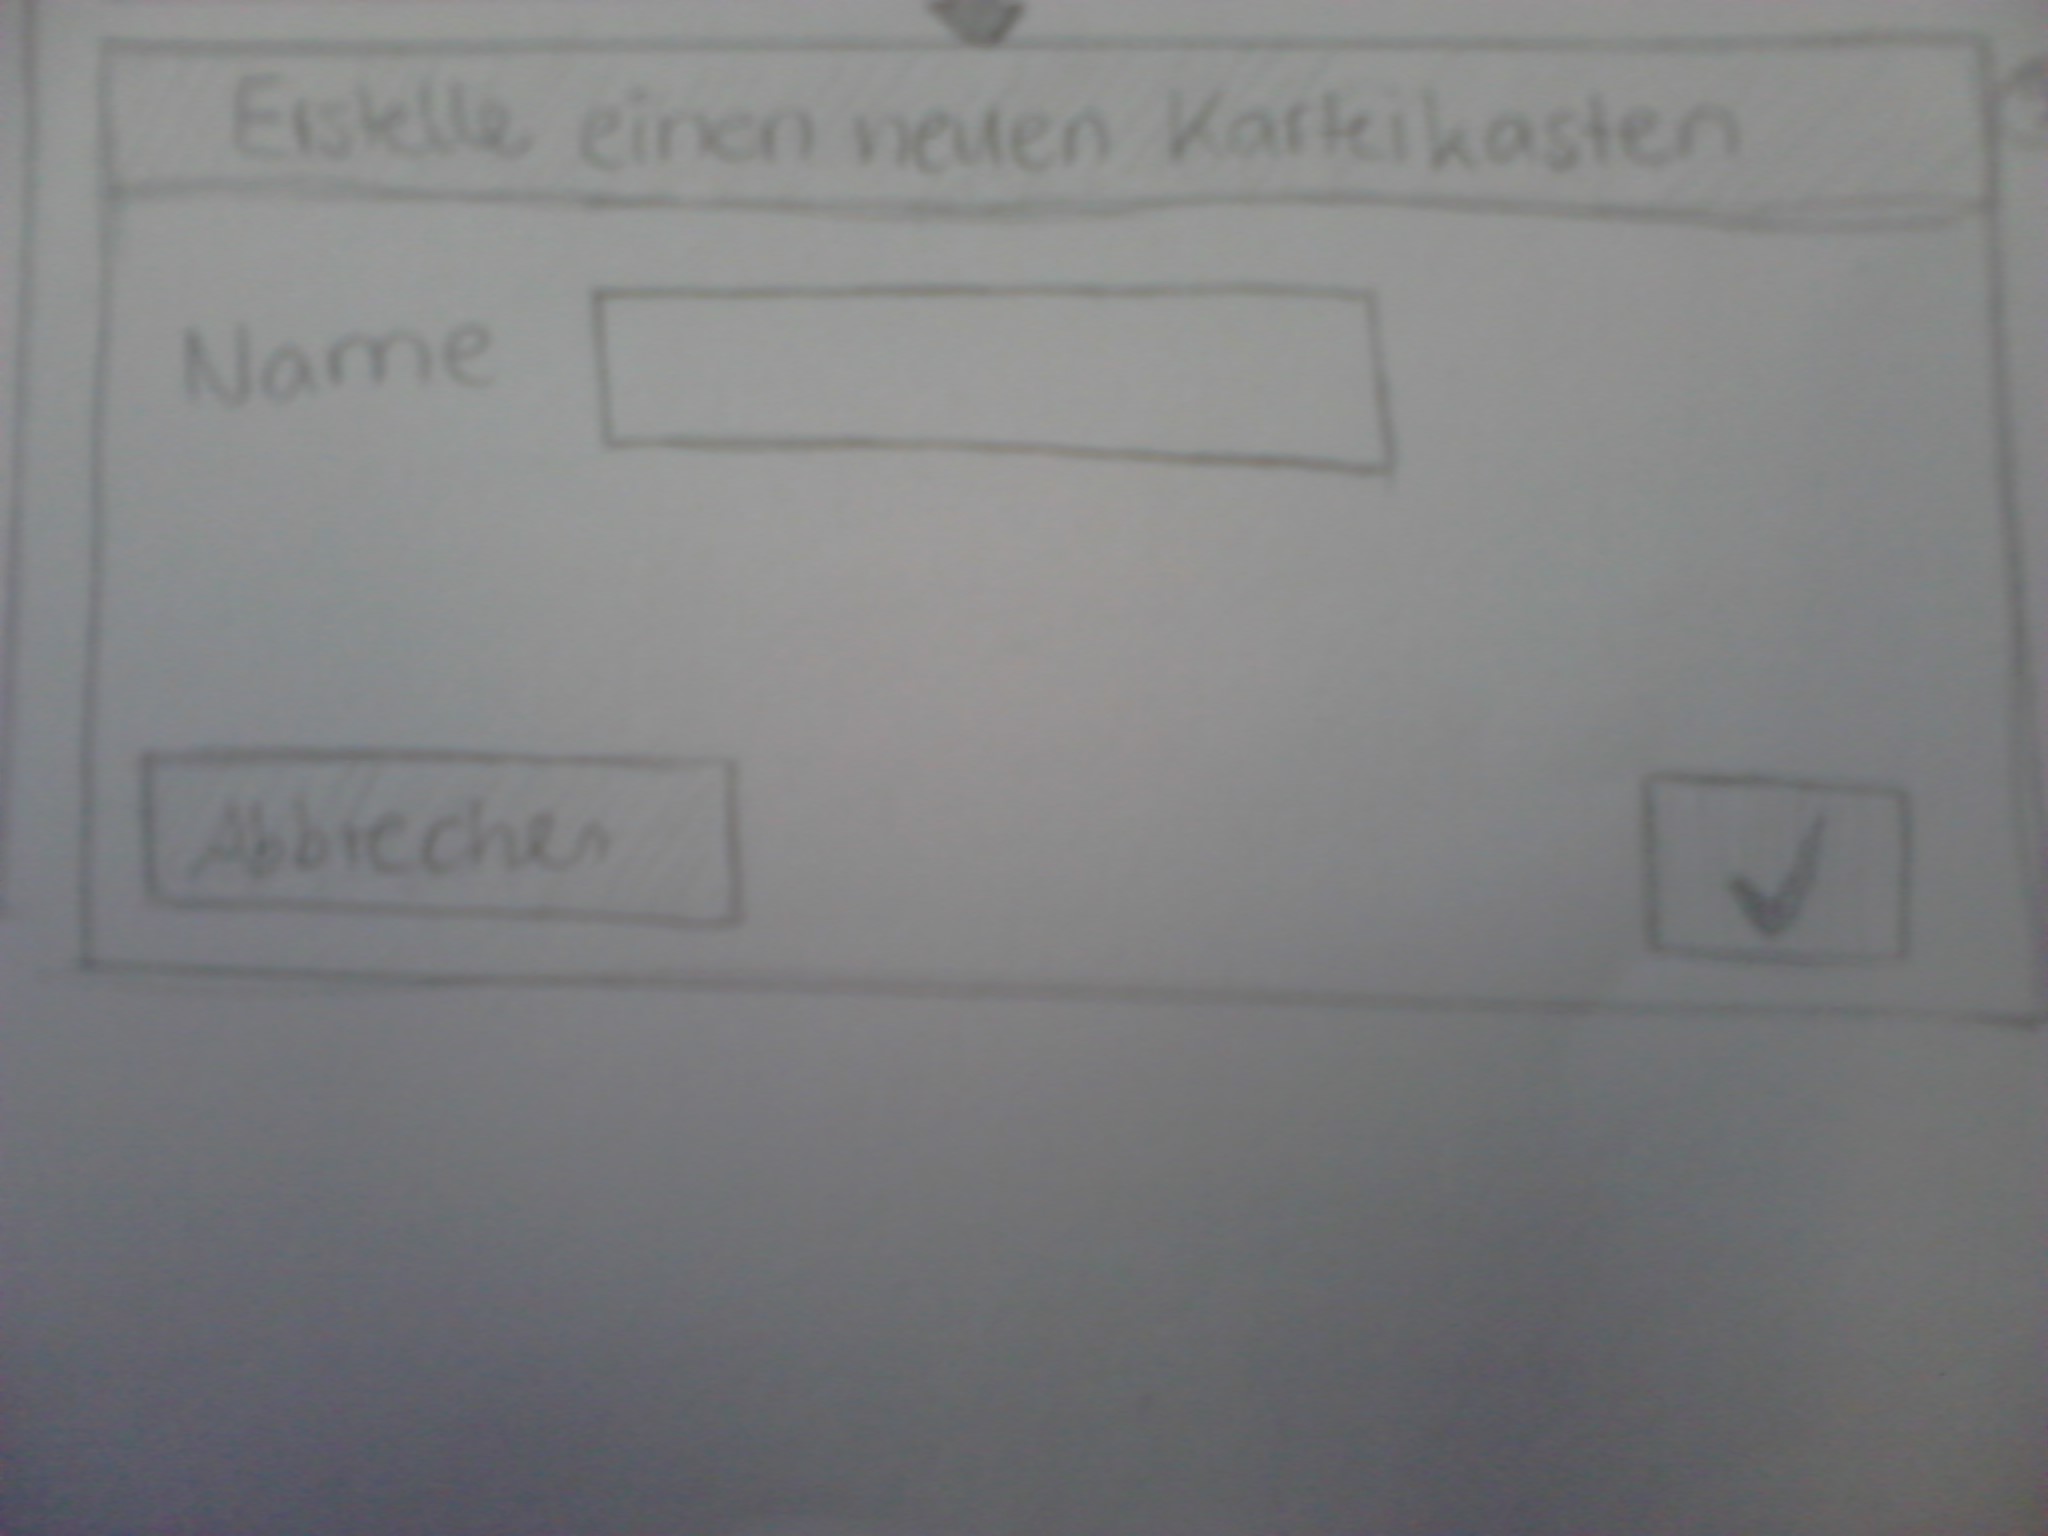 Erstelle einen neuen Karteikasten
Name
Abbrechen